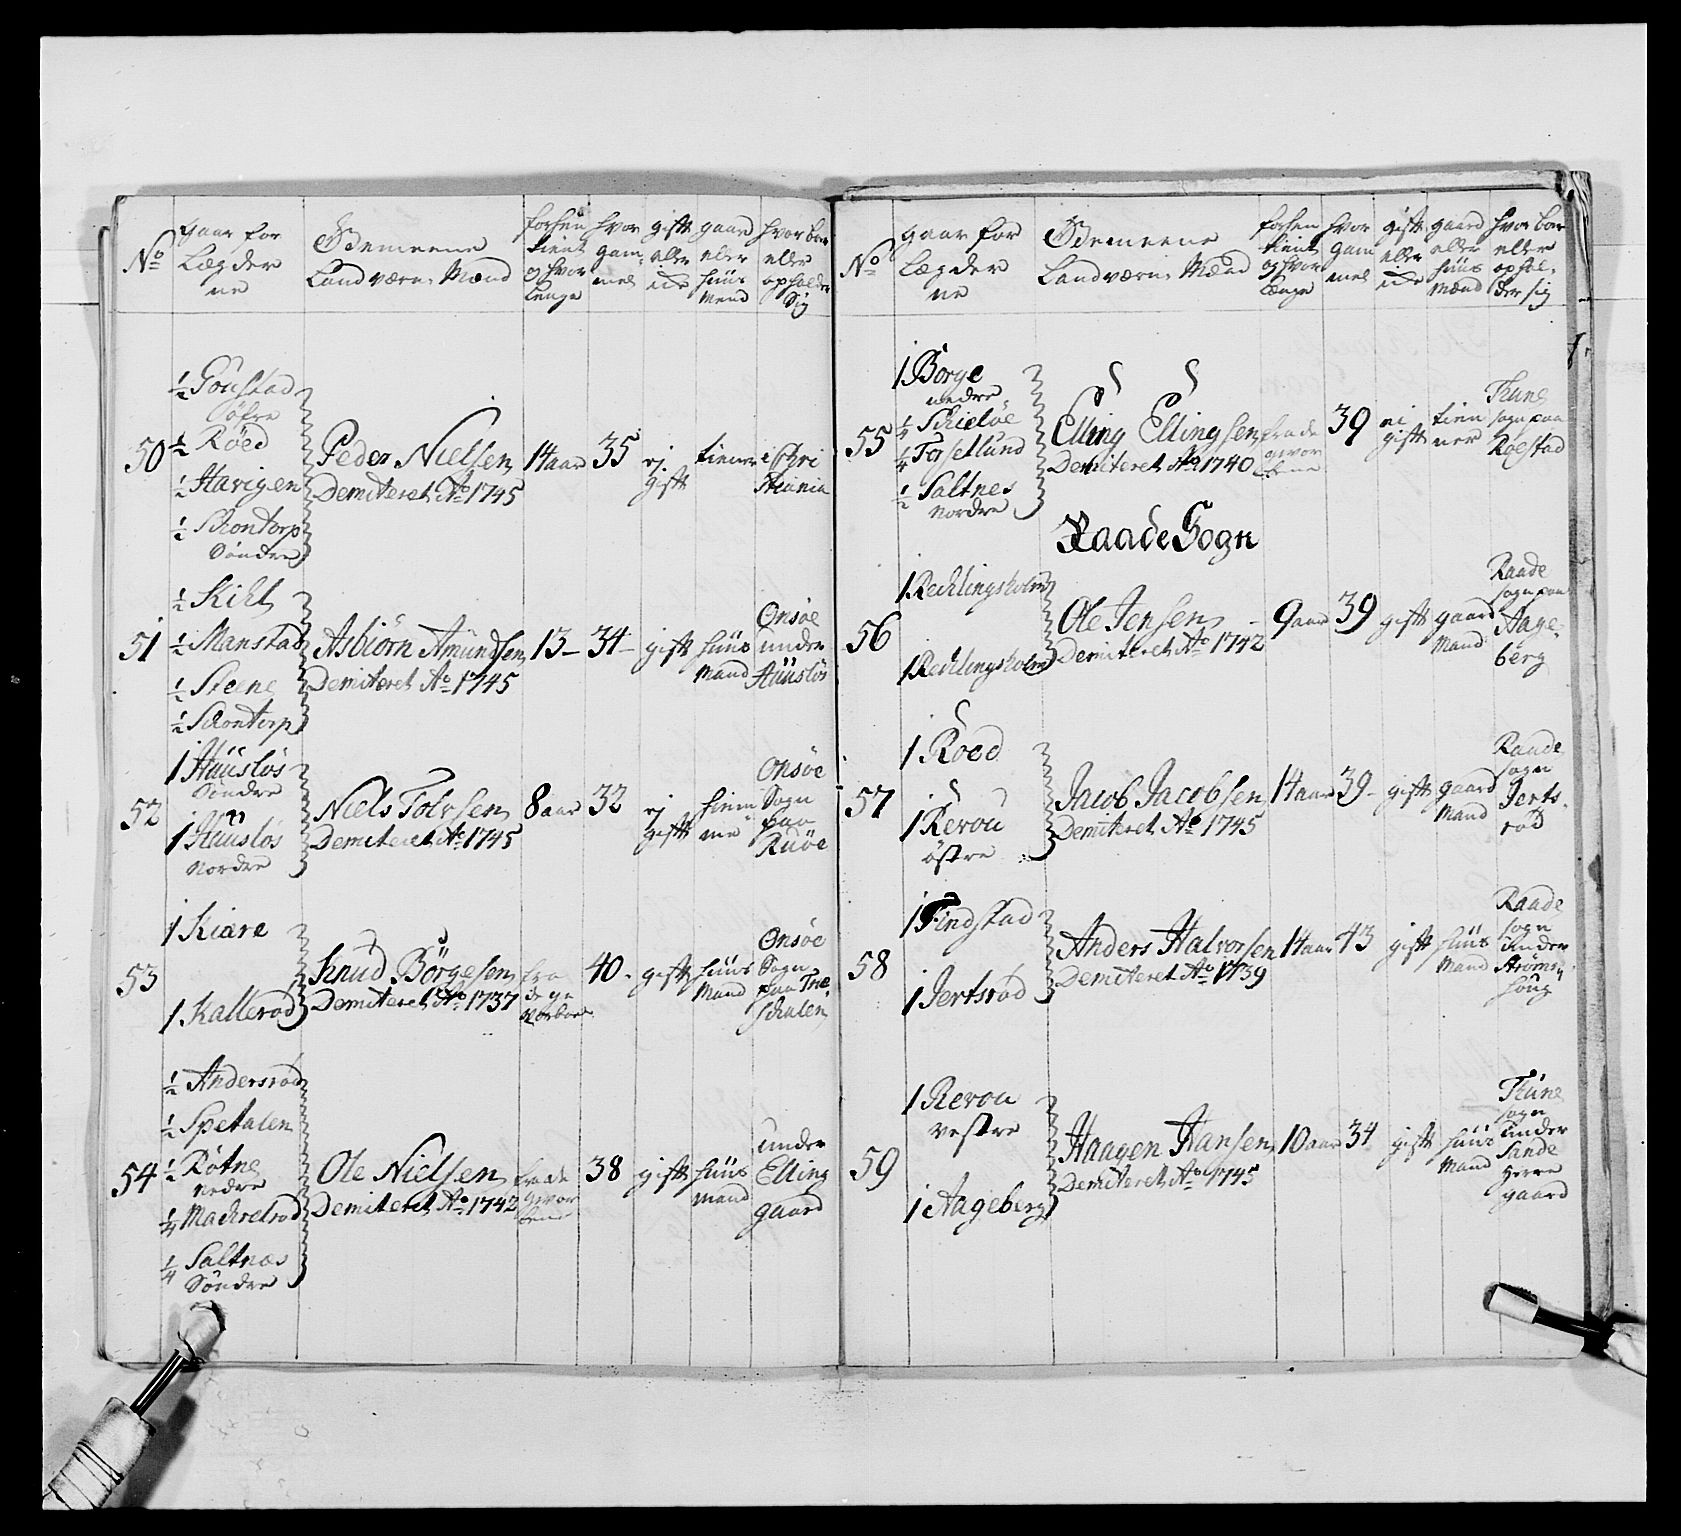 No
gaar for
Lægder
ne
Gemeene
Landværn, Mænd
forhen
tient
og hvor
lenge
hvor
gam
mel
gift
eller
ei
gaard
eller
huus
Mend
hvor boe
eller
opholder
Sig
50
1/2 Goustad
øfre
1/2 Röed
1/2 Havigen
1/2 Skontorp
Söndre
Peder Nielsen
Demiteret Ao 1745
14 aar
35
ej
gift
tiener
i Chri
stiania
51
1/2 Kihl
1/2 Manstad
1/2 Steene
1/2 Skontorp
Asbiörn Amundsen
Demiteret Ao 1745
13 -
34 -
gift
huus
Mand
Onsöe
under
Huuslös
52
1 Huuslös
Söndre
1 Huuslös
Nordre
Niels Tolvsen
Demiteret Ao 1745
8 aar
32
ej
gift
hiem
me
Onsöe
Sogn
paa
Rüöe
53
1 Kiære
1 Kallerod
Knud Börgesen
Demiteret Ao 1737
fra
de ge
vorbene
40 -
gift
huus
Mand
Onsöe
Sogn
paa Tne
schalen
54
1/2 Andersrod
1/2 Spetalen
1/2 Rötne
nedre
1/4 Mackrelrod
1/4 Saltnæs
Söndre
Ole Nielsen
Demiteret Ao 1742
fra de
gevor
bene
38
gift
huus
mand
under
Elling
gaard
No
gaar for
Lægder
ne
Gemeene
Landværn, Mænd
forhen
tient
og hvor
Længe
hvor
gam
mel
gift
eller
ei
gaard
eller
huus
Mænd
hvor boe
eller
ophol
der sig
55
1 Borge
nedre
1/4 Skielöe
1/4 Torsetlund
1/2 Saltnes
Nordre
Elling Ellingsen
Demiteret Ao 1740
fra de
gevor
bene
39
ei
gift
tien
ner
Thune
sogn paa
Roestad
Raade Sogn
56
1 Rechlingsholm
1 Rechlingsholm
Ole Jensen
Demiteret Ao 1742
9 aar
39
gift
gaard
Mand
Raade
sogn paa
Aage
berg
57
1 Roed
1 Revou
östre
Jacob Jacobsen
Demiteret Ao 1745
14 aar
39 -
gift
gaard
Mand
Raade
sogn
Jerts
rod
58
1 Findstad
1 Jertsröd
Anders Halvorsen
Demiteret Ao 1739
14 aar
43
gift
huus
Mand
Raade
sogn
under
Ströms
houg
59
1 Revou
vestre
1 Aageberg
Haagen Hansen
Demiteret Ao 1745
10 aar
34
gift
huus
Mand
Thune
sogn
under
Sande
herre
gaard